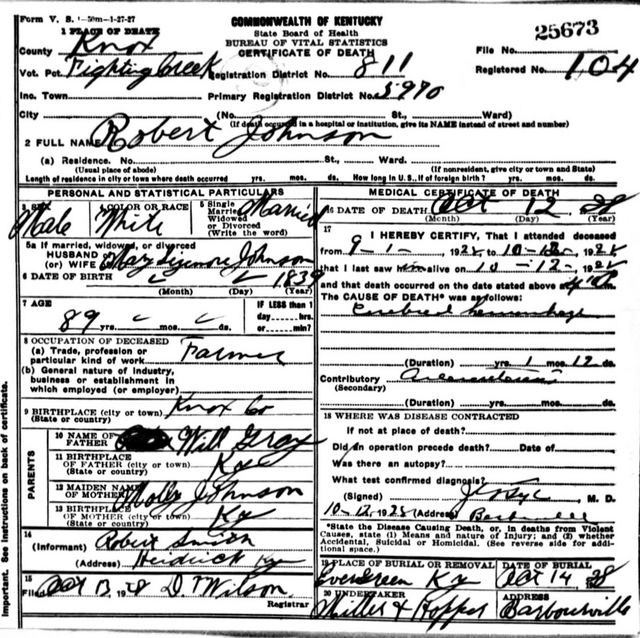 Form V. S. 1-50m-1-27-27
COMMONWEALTH OF KENTUCKY
State Board of Health
BUREAU OF VITAL STATISTICS
CERTIFICATE OF DEATH
25673
1 PLACE OF DEATH
County Knox
File No.
Vot. Pct. Fighting Creek Registration District No. 811 Registered No. 104
Inc. Town Primary Registration District No. 5970
City (No. St., Ward)
(If death occurred in a hospital or institution, give its NAME instead of street and number)
2 FULL NAME Robert Johnson
(a) Residence. No. St., Ward.
(Usual place of abode) (If nonresident, give city or town and State)
Length of residence in city or town where death occurred yrs. mos. ds. How long in U.S., if of foreign birth? yrs. mos. ds.
PERSONAL AND STATISTICAL PARTICULARS
3 SEX Male
4 COLOR OR RACE White
5 Single Married Widowed or Divorced (Write the word) Married
5a If married, widowed, or divorced
HUSBAND of (or) WIFE of Mary Johnson
6 DATE OF BIRTH 1839
(Month) (Day) (Year)
7 AGE 89 yrs. mos. ds.
IF LESS than 1 day----hrs. or----min.
8 OCCUPATION OF DECEASED
(a) Trade, profession or particular kind of work Farmer
(b) General nature of industry, business or establishment in which employed (or employer)
9 BIRTHPLACE (city or town) Knox Co
(State or country)
PARENTS
10 NAME OF FATHER Will Gray
11 BIRTHPLACE OF FATHER (city or town) Ky
(State or country)
12 MAIDEN NAME OF MOTHER Molly Johnson
13 BIRTHPLACE OF MOTHER (city or town) Ky
(State or country)
14
(Informant) Robert Smith
(Address) Heidrick Ky
15
Filed Oct 13 1928 D. T Wilson
Registrar
MEDICAL CERTIFICATE OF DEATH
16 DATE OF DEATH Oct 12 28
(Month) (Day) (Year)
17
I HEREBY CERTIFY, That I attended deceased
from 9-1-, 1928 to 10-12-, 1928
that I last saw him alive on 10-12-, 1928
and that death occurred on the date stated above
The CAUSE OF DEATH* was as follows:
Cerebral hemorrhage
(Duration) yrs. 1 mos. 12 ds.
Contributory
(Secondary)
(Duration) yrs. mos. ds.
18 WHERE WAS DISEASE CONTRACTED
If not at place of death?
Did an operation precede death? Date of
Was there an autopsy?
What test confirmed diagnosis?
(Signed) M. D.
10-12, 1928 (Address)
*State the Disease Causing Death, or, in deaths from Violent
Causes, state (1) Means and nature of Injury; and (2) whether
Accidental, Suicidal or Homicidal. (See reverse side for additional space.)
19 PLACE OF BURIAL OR REMOVAL DATE OF BURIAL
Evergreen Ky Oct 14 28
20 UNDERTAKER ADDRESS
Miller & Hopper Barbourville
Important. See instructions on back of certificate.